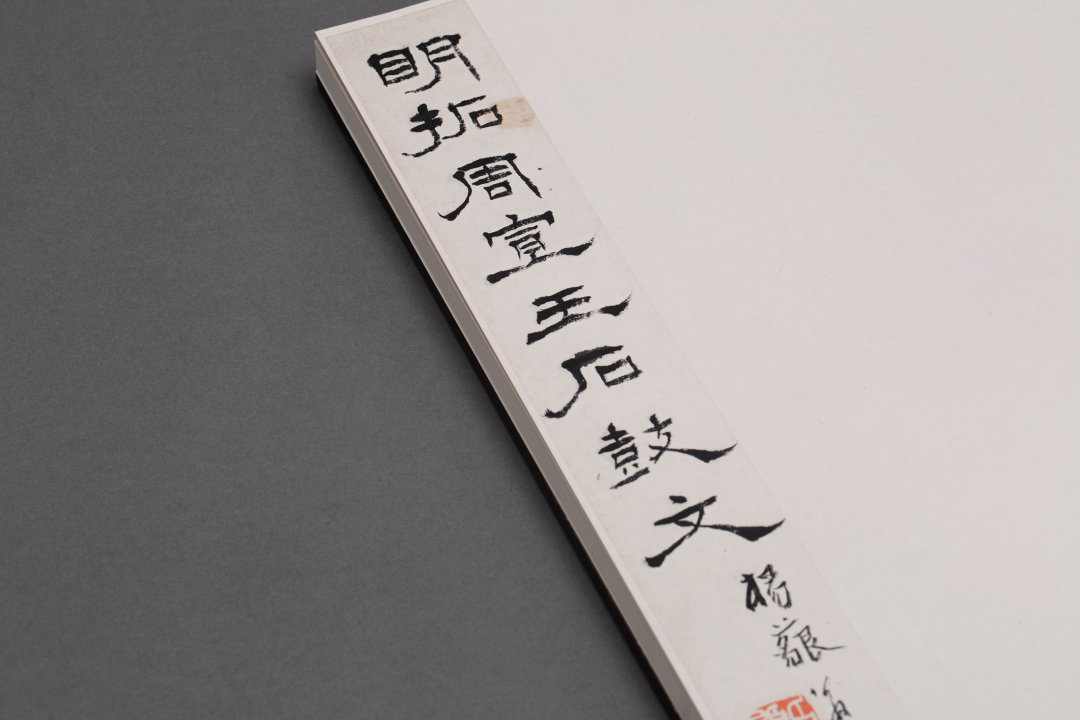 明拓周宣王石鼓文
楊